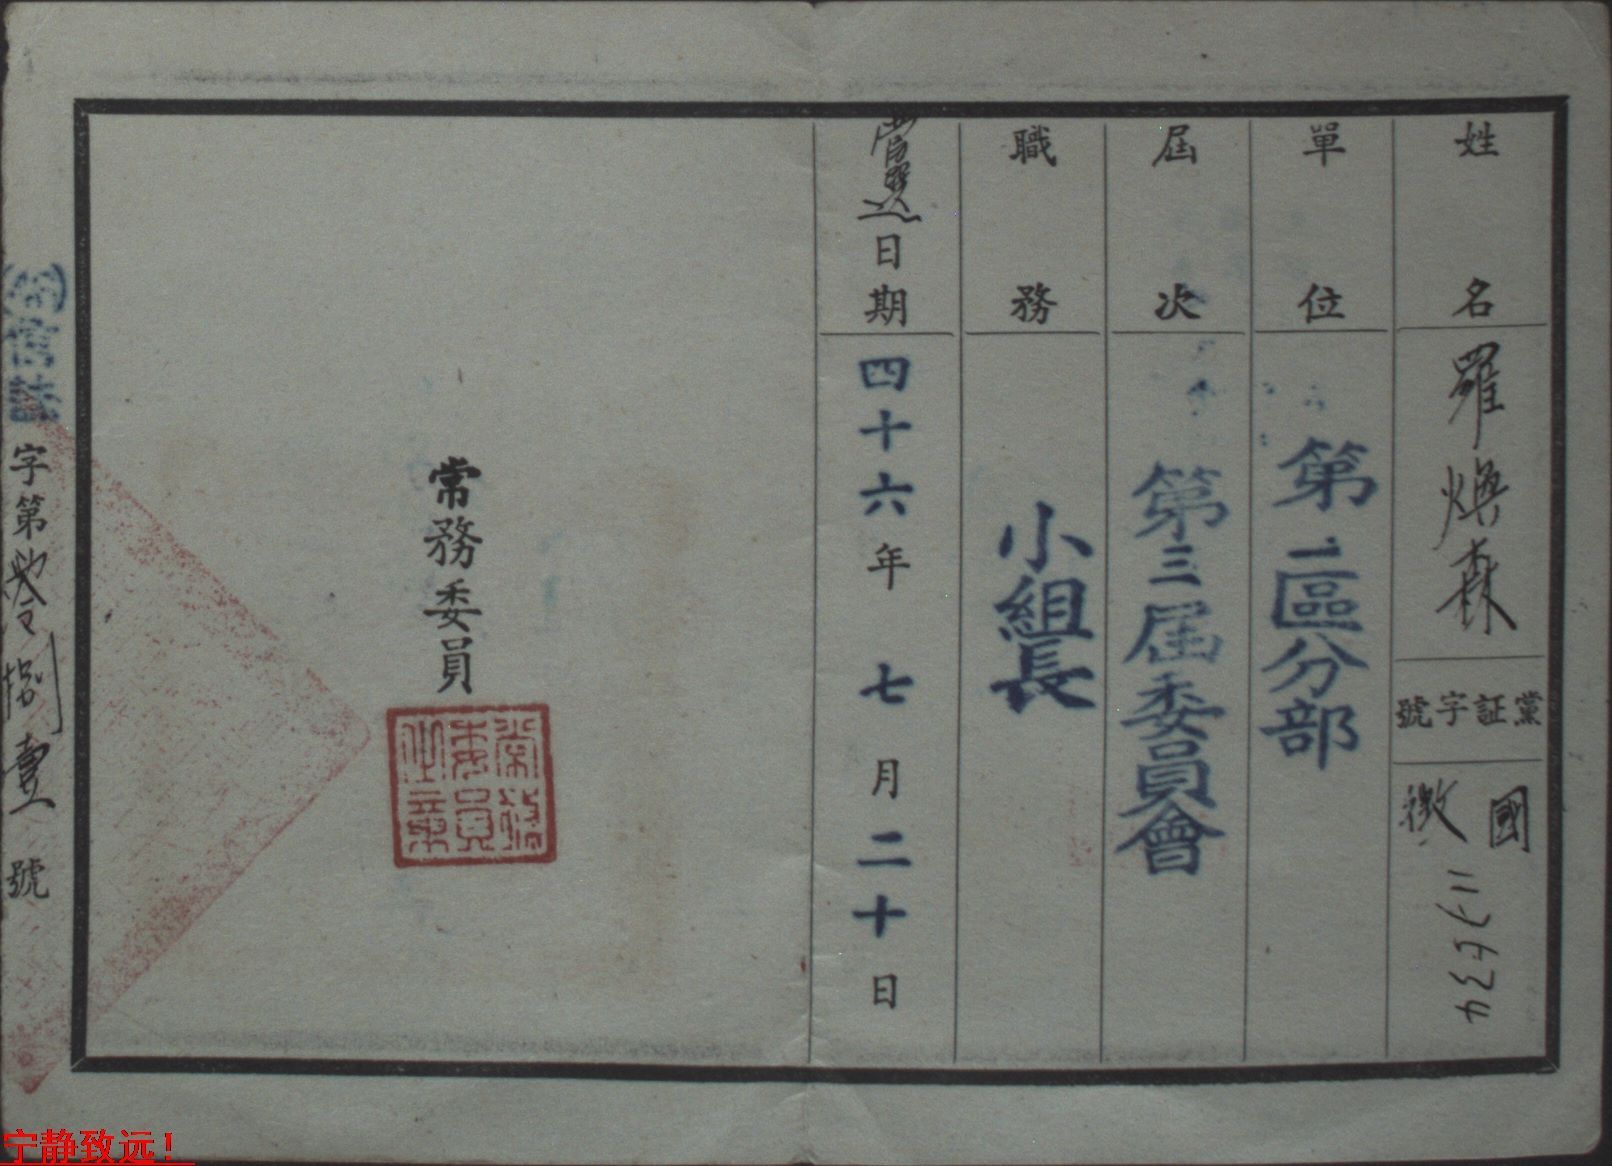 姓名 羅煥森
黨証字號 國徽
單位 第一區分部
屆次 第三屆委員會
職務 小組長
當選日期 四十六年七月二十日
常務委員
常務委員之章
字第 零捌壹號
宁静致远！